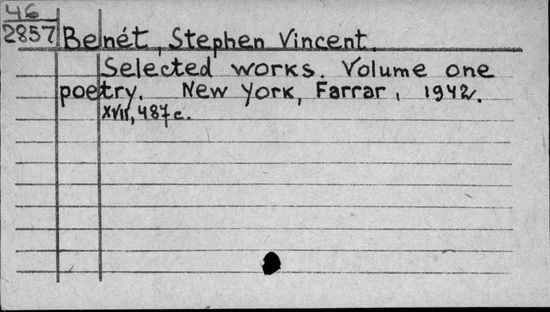 46
2857 Benét, Stephen Vincent.
Selected works. Volume one
poetry. New York, Farrar, 1942.
XVII, 487 c.